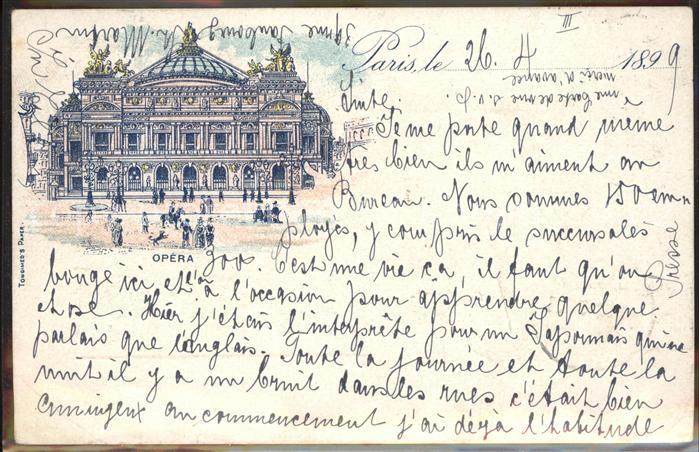 Paris, le 26. 4 1899
III
39 me Faubourg St. Martin
une carte de vue s.v.p.
merci d'avance
Je me porte quand même
très bien ils m'aiment au
Bureau. Nous sommes 150 em-
ployés, y compris le succursales
300. C'est une vie ça, il faut qu'on
bouge ici et à l'occasion pour apprendre quelque
chose. Hier j'étais l'interprète pour un Japonnais qui ne
parlais que l'anglais. Toute la journée et toute la
nuit il y a un bruit dans les rues c'était bien
au commencement j'ai déjà l'habitude
OPÉRA
TONDIMED'S PAPER